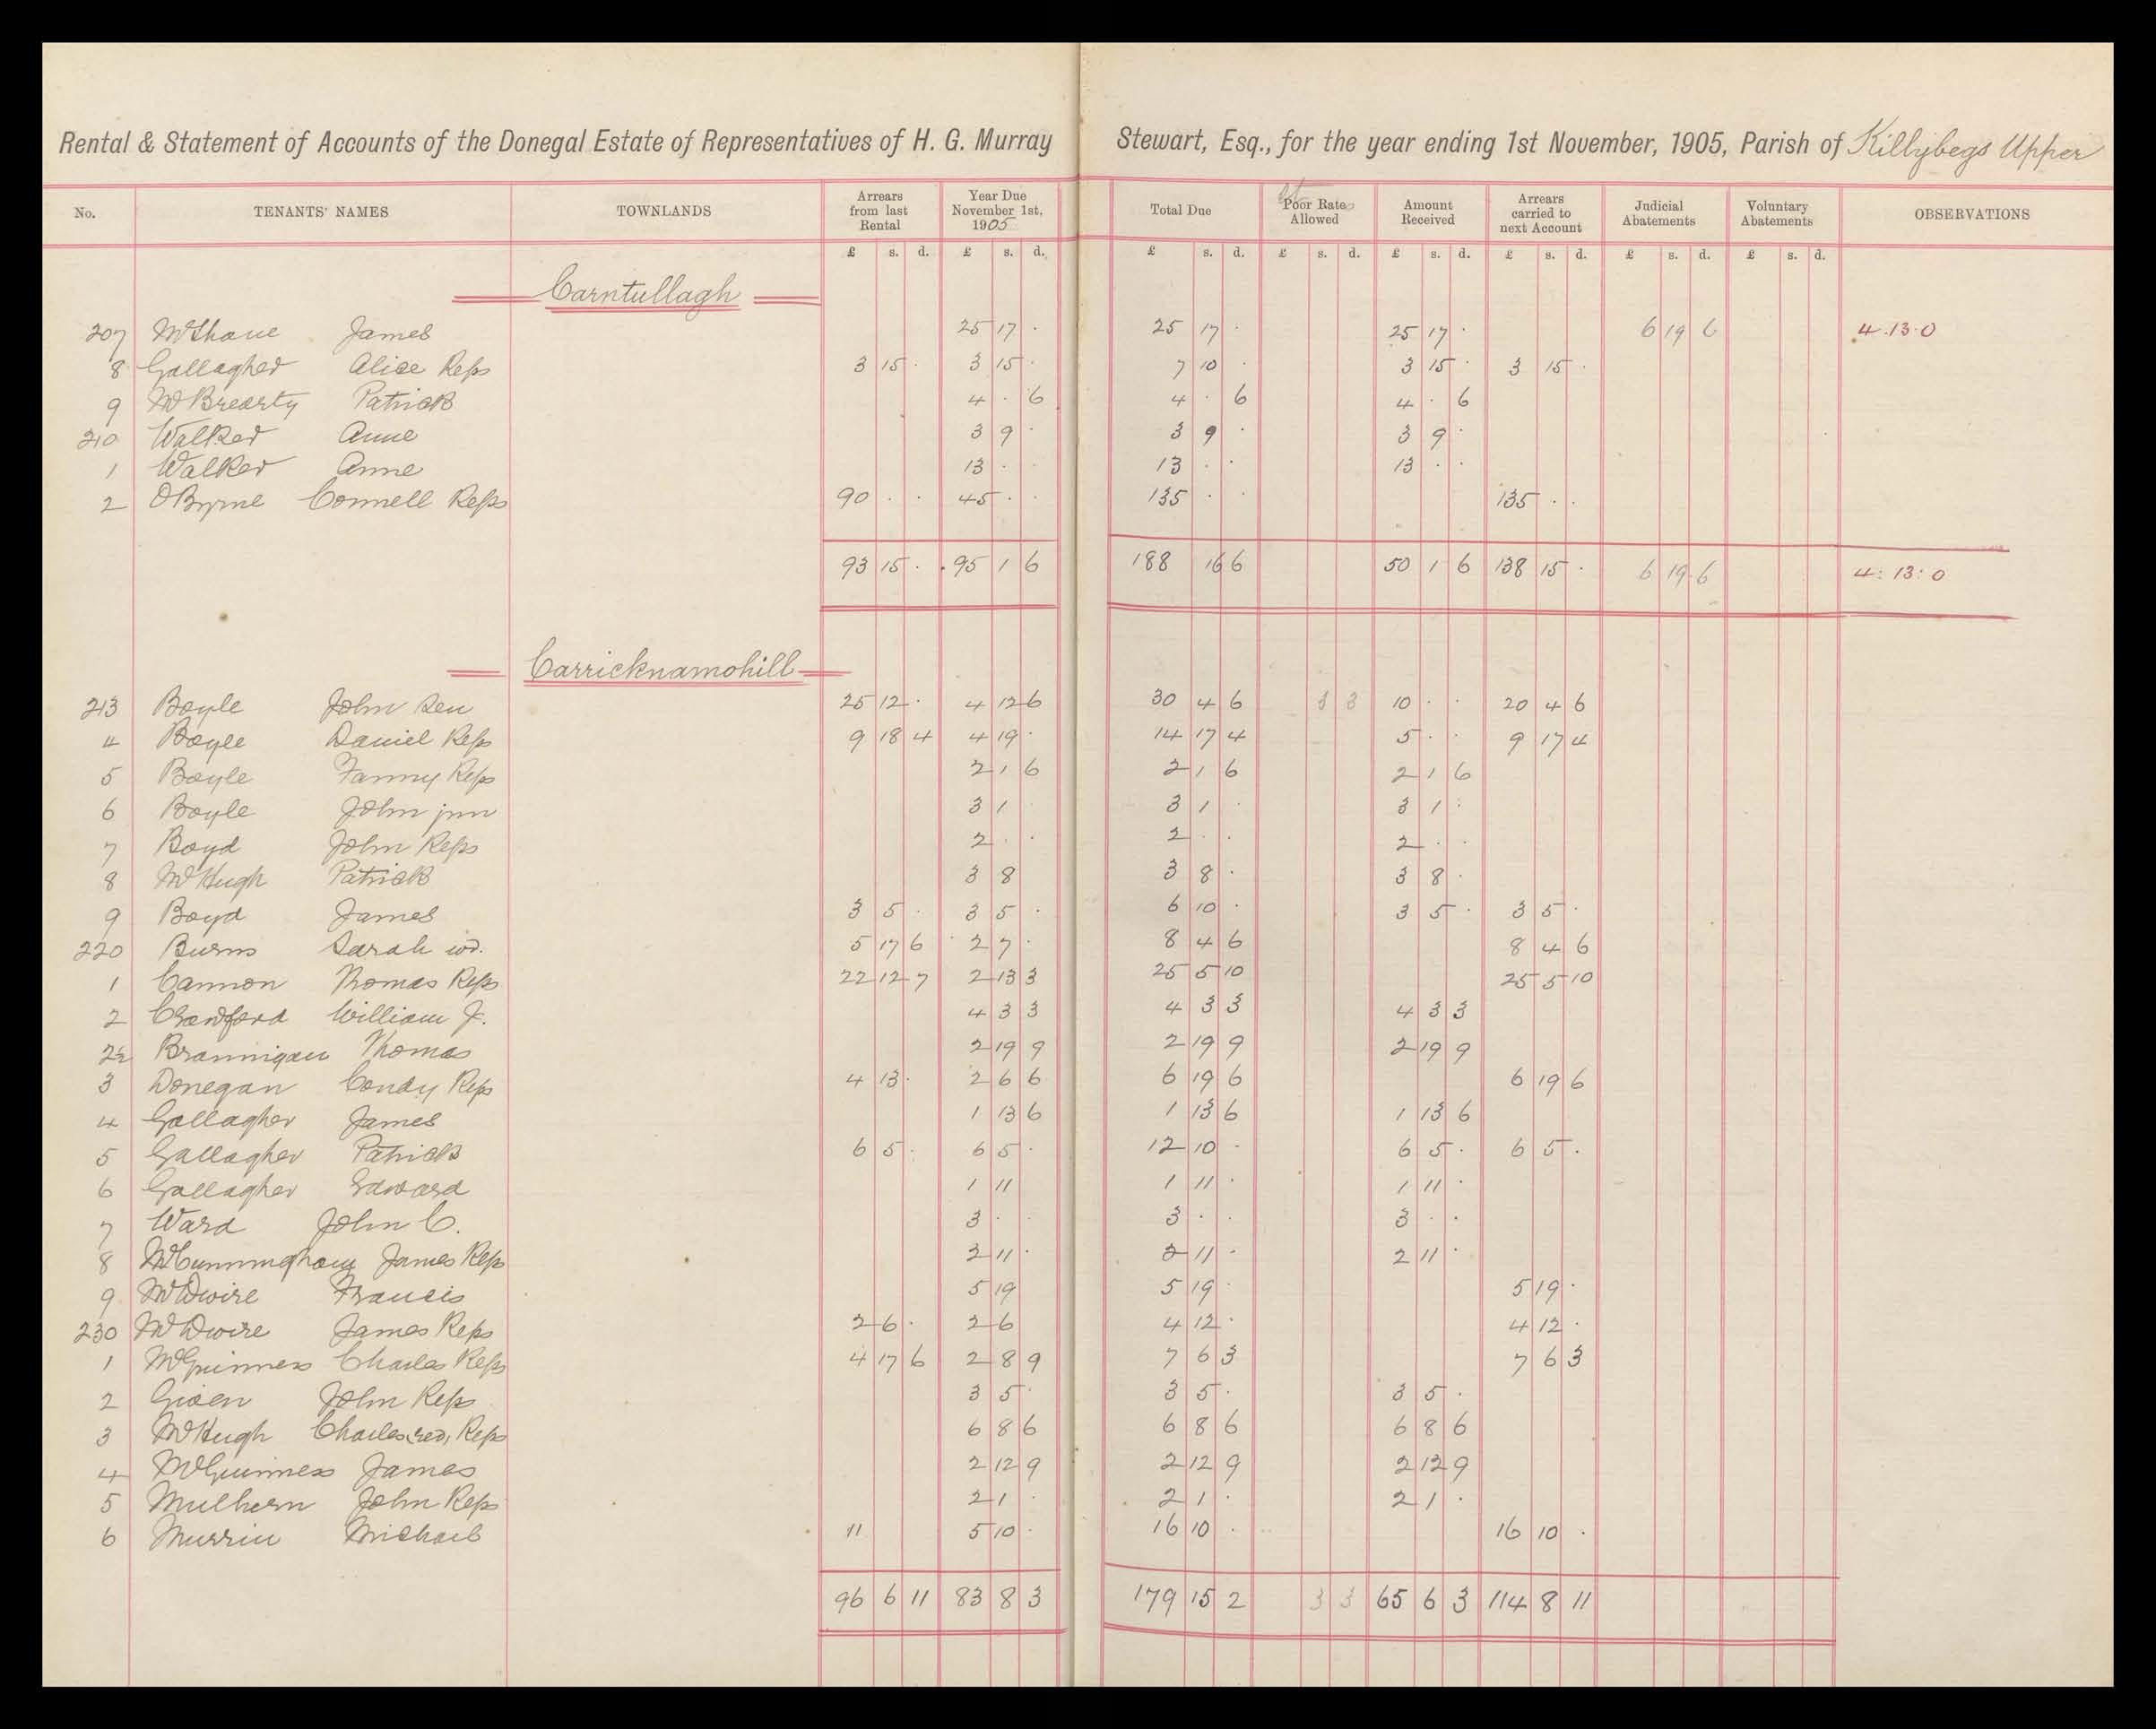 Rental & Statement of Accounts of the Donegal Estate of Representatives of H. G. Murray Stewart, Esq., for the year ending 1st November, 1905, Parish of Killybegs Upper
No. TENANTS' NAMES TOWNLANDS Arrears from last Rental Year Due November 1st, 1905 Total Due Poor Rate Allowed Amount Received Arrears carried to next Account Judicial Abatements Voluntary Abatements OBSERVATIONS
£ s. d. £ s. d. £ s. d. £ s. d. £ s. d. £ s. d. £ s. d. £ s. d.
Carntullagh
207 McShane James 25 17 · 25 17 · 25 17 · 6 19 6 4.13.0
8 Gallagher Alice Reps 3 15 · 3 15 · 7 10 · 3 15 · 3 15 ·
9 McBrearty Patrick 4 · 6 4 · 6 4 · 6
210 Walker Anne 3 9 · 3 9 · 3 9 ·
1 Walker Anne 13 · · 13 · · 13 · ·
2 OByrne Connell Reps 90 · · 45 · · 135 · · 135 · ·
93 15 · 95 1 6 188 16 6 50 1 6 138 15 · 6 19 6 4:13:0
Carricknamohill
213 Boyle John Sen 25 12 · 4 12 6 30 4 6 3 3 10 · · 20 4 6
4 Boyle Daniel Reps 9 18 4 4 19 · 14 17 4 5 · · 9 17 4
5 Boyle Fanny Reps 2 1 6 2 1 6 2 1 6
6 Boyle John jun 3 1 3 1 · 3 1 ·
7 Boyd John Reps 2 · · 2 · · 2 · ·
8 McHugh Patrick 3 8 3 8 · 3 8 ·
9 Boyd James 3 5 · 3 5 · 6 10 · 3 5 · 3 5 ·
220 Burns Sarah wd. 5 17 6 2 7 · 8 4 6 8 4 6
1 Cannon Thomas Reps 22 12 7 2 13 3 25 5 10 25 5 10
2 Crawford William J. 4 3 3 4 3 3 4 3 3
2½ Brannigan Thomas 2 19 9 2 19 9 2 19 9
3 Donegan Condy Reps 4 13 · 2 6 6 6 19 6 6 19 6
4 Gallagher James 1 13 6 1 13 6 1 13 6
5 Gallagher Patrick 6 5 · 6 5 · 12 10 · 6 5 · 6 5 ·
6 Gallagher Edward 1 11 1 11 · 1 11 ·
7 Ward John C. 3 · · 3 · · 3 · ·
8 McCunningham James Reps 2 11 · 2 11 · 2 11 ·
9 McDwire Francis 5 19 5 19 · 5 19 ·
230 McDwire James Reps 2 6 · 2 6 4 12 · 4 12 ·
1 McGuinness Charles Reps 4 17 6 2 8 9 7 6 3 7 6 3
2 Given John Reps 3 5 · 3 5 · 3 5 ·
3 McHugh Charles, red, Reps 6 8 6 6 8 6 6 8 6
4 McGuinness James 2 12 9 2 12 9 2 12 9
5 Mulhern John Reps 2 1 · 2 1 · 2 1 ·
6 Murrin Michael 11 5 10 · 16 10 · 16 10 ·
96 6 11 83 8 3 179 15 2 3 3 65 6 3 114 8 11